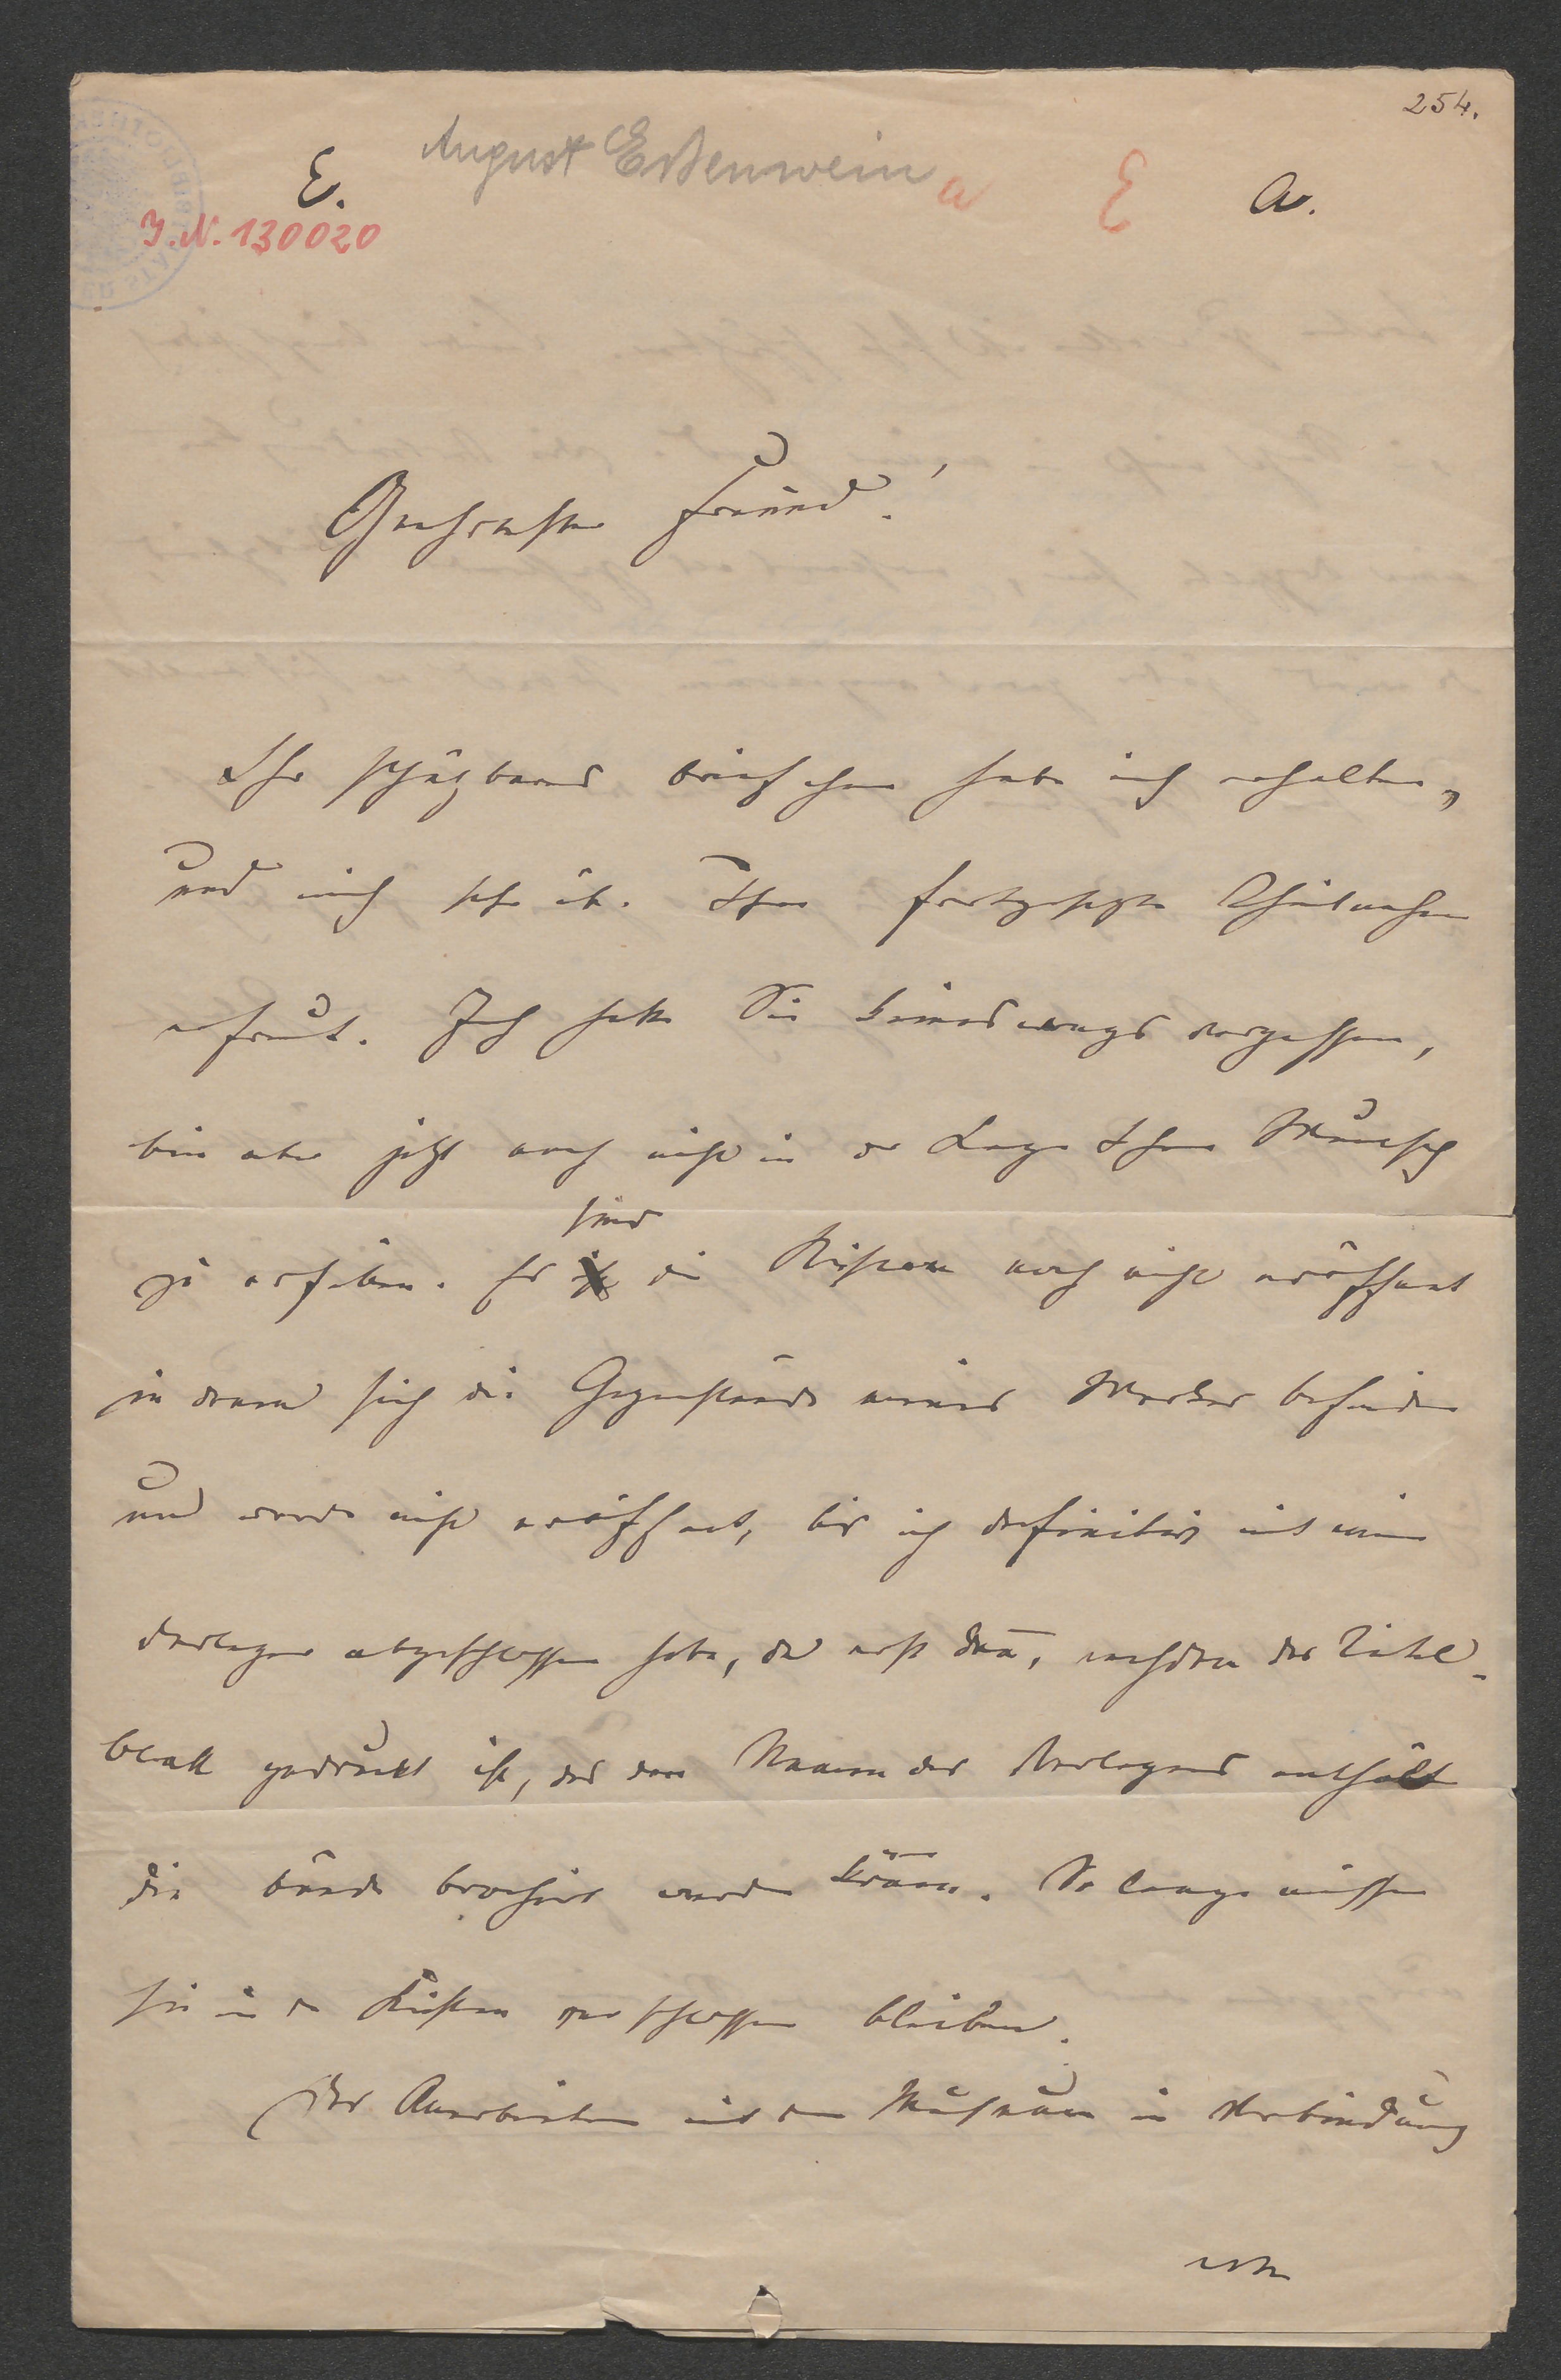 254.
August Essenwein
E. a E a.
I.N. 130020
Geehrtester Freund!
Ihr schätzbares Briefchen habe ich erhalten,
und mich sehr üb. Ihre fortgesetzte Theilnahme
erfreut. Ich hatte Sie keineswegs vergessen,
bin aber jetzt noch nicht in der Lage Ihren Wunsch
zu erfüllen. Es sind die Kisten noch nicht eröffnet
in denen sich die Gegenstände meines Werkes befinden
und werden nicht eröffnet, bis ich definitiv mit einem
Verleger abgeschlossen habe, da erst dan̄, nachdem das Titel-
blatt gedruckt ist, das den Namen des Verlegers enthält
die Bände brochirt werden kön̄en. So lange müssen
sie in den Kisten verschlossen bleiben.
Das Anerbieten mit dem Museum in Verbindung